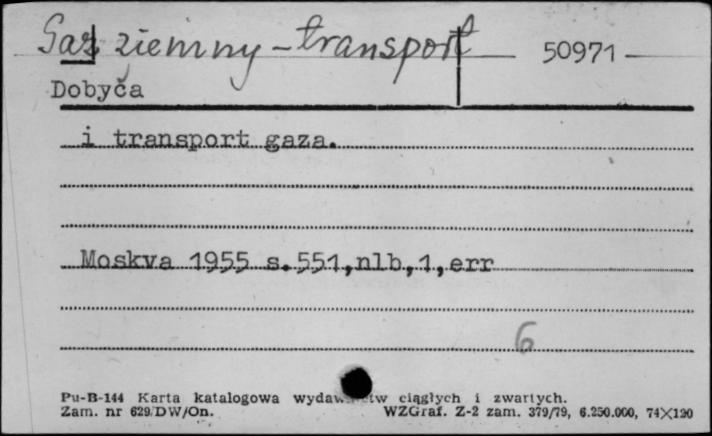 Gaz ziemny - transport 50971
Dobyča
i transport gaza.
Moskva 1955 s.551,nlb,1,err
6
Pu-B-144 Karta katalogowa ciągłych i zwartych.
Zam. nr 629/DW/On. WZGraf. Z-2 zam. 379/79, 6.250.000, 74×120